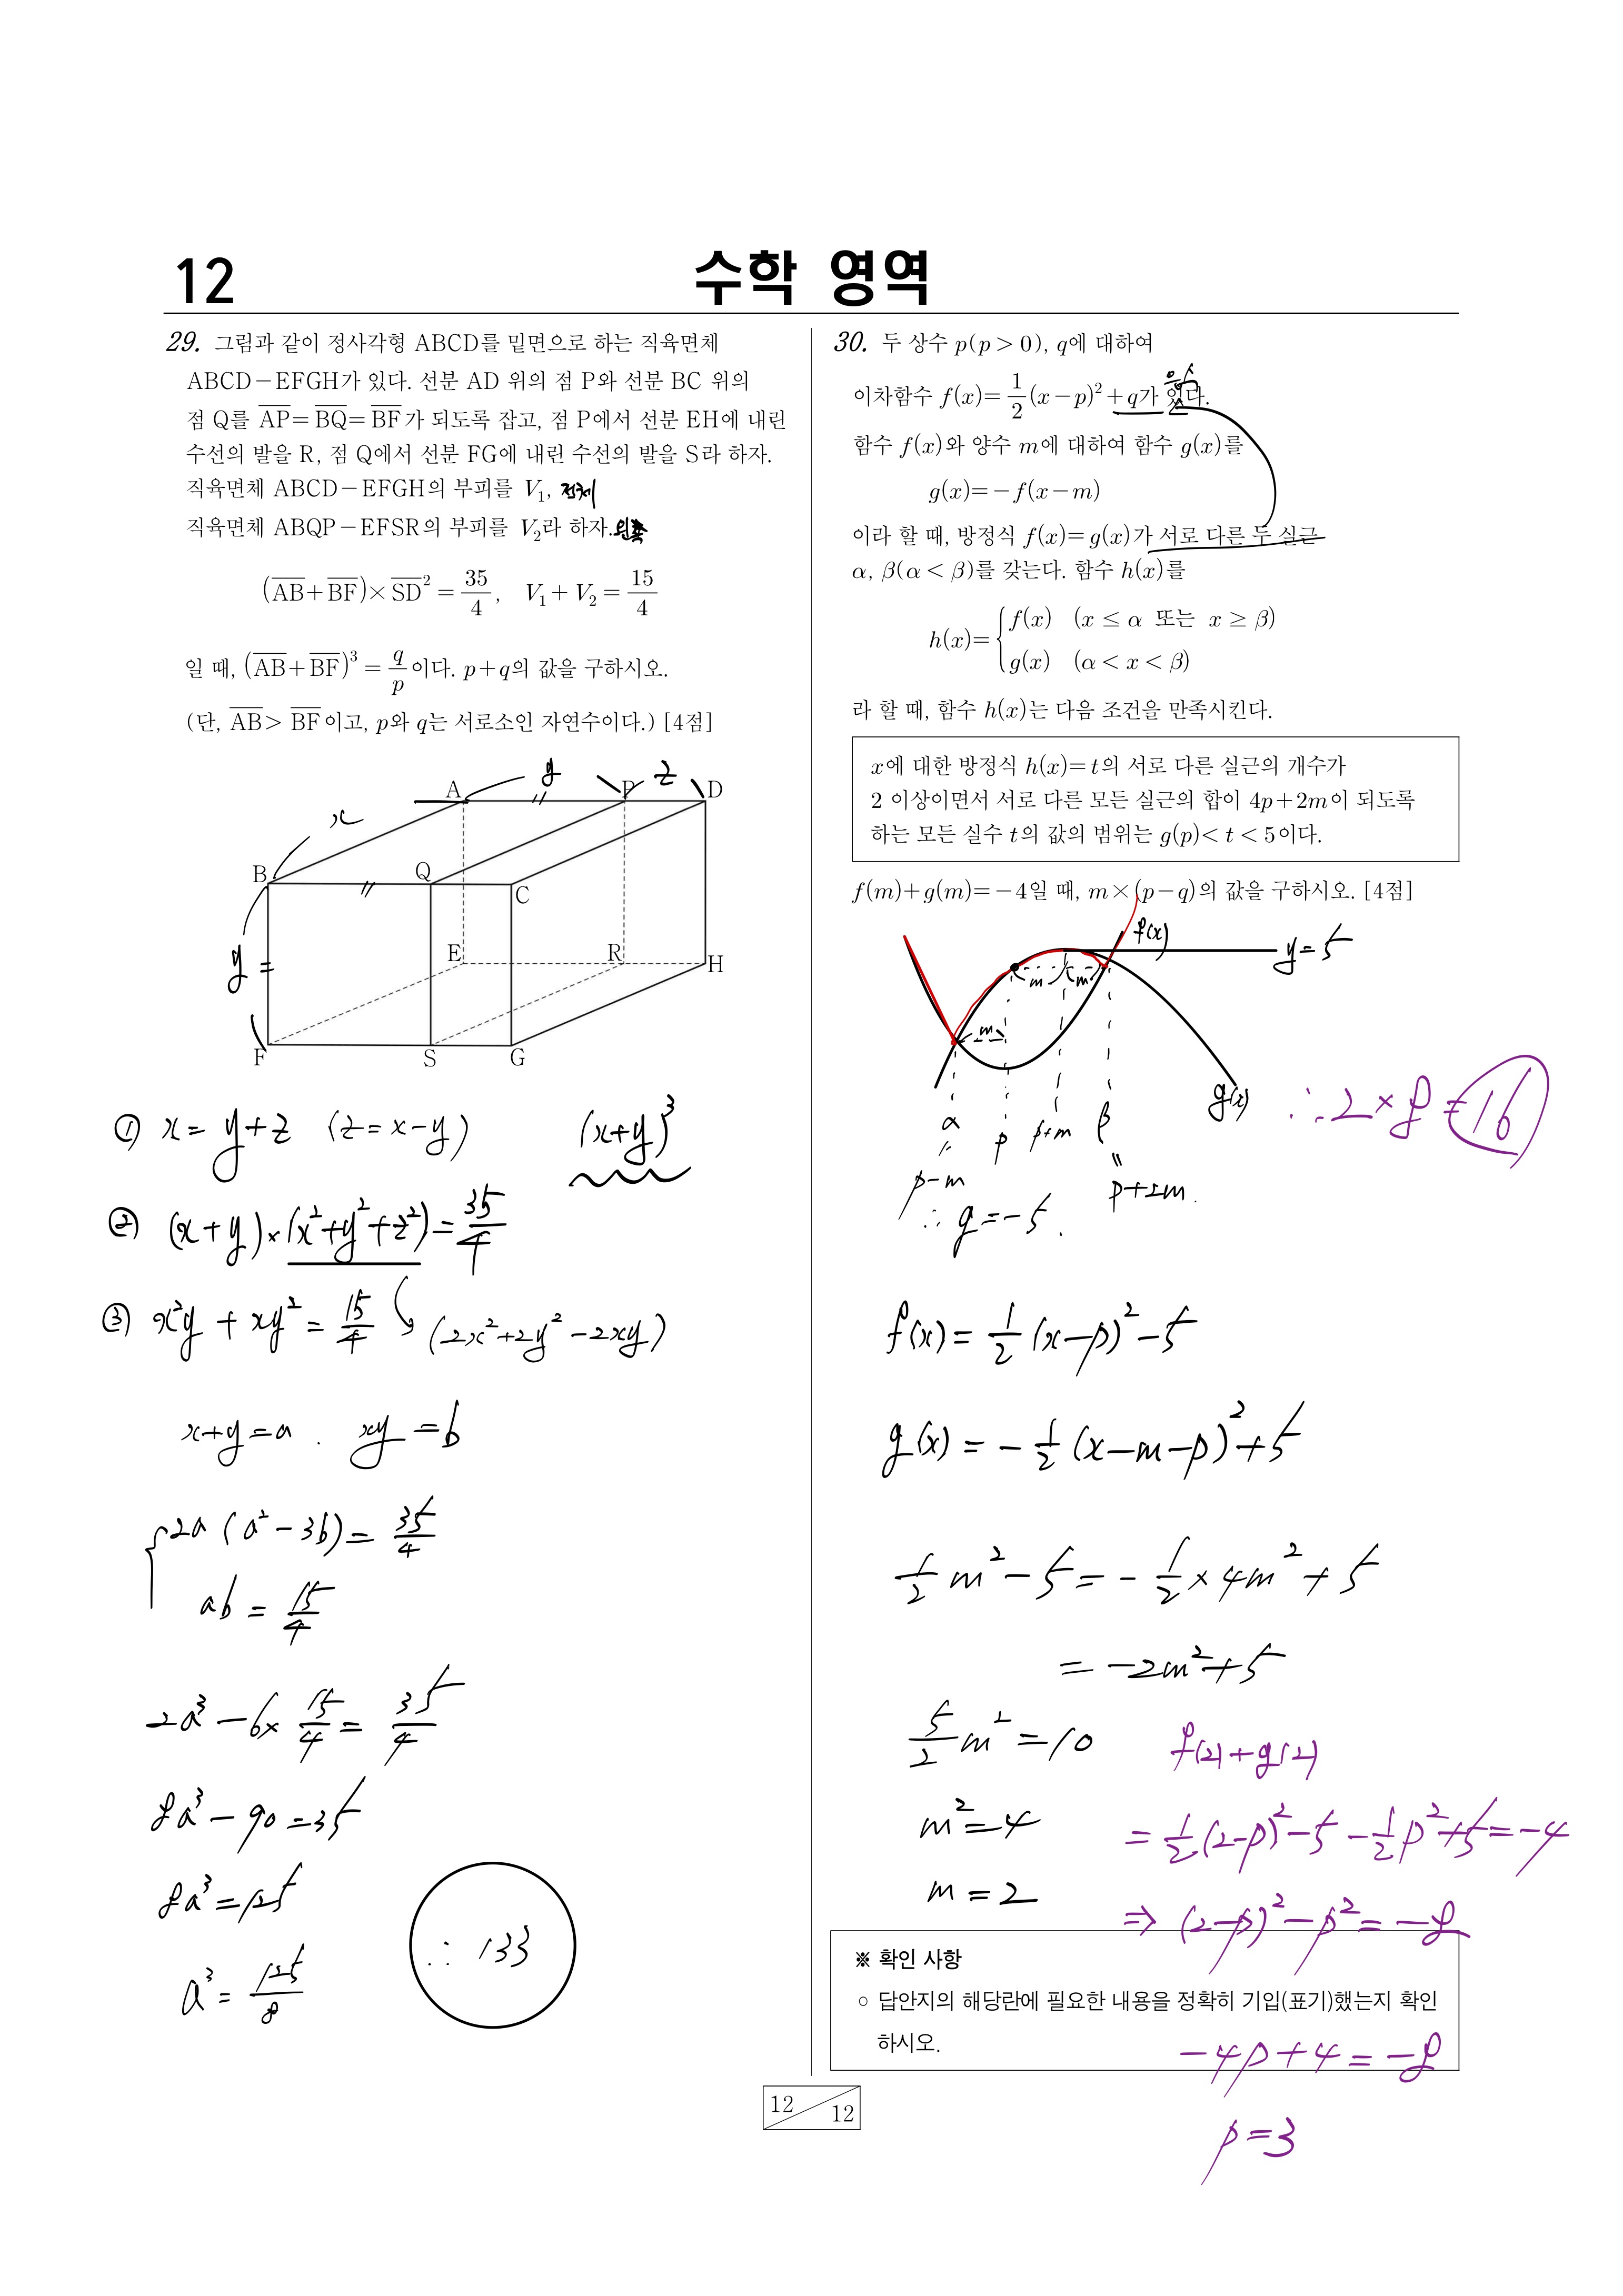 12
수학 영역
29. 그림과 같이 정사각형 ABCD를 밑면으로 하는 직육면체
ABCD-EFGH가 있다. 선분 AD 위의 점 P와 선분 BC 위의
점 Q를 \overline{AP}=\overline{BQ}=\overline{BF}가 되도록 잡고, 점 P에서 선분 EH에 내린
수선의 발을 R, 점 Q에서 선분 FG에 내린 수선의 발을 S라 하자.
직육면체 ABCD-EFGH의 부피를 V₁, 전체
직육면체 ABQP-EFSR의 부피를 V₂라 하자. 왼쪽
(\overline{AB}+\overline{BF})×\overline{SD}² = 35/4, V₁+V₂ = 15/4
일 때, (\overline{AB}+\overline{BF})³ = q/p 이다. p+q의 값을 구하시오.
(단, \overline{AB} > \overline{BF}이고, p와 q는 서로소인 자연수이다.) [4점]
A y P z D
x
B Q C
y = E R H
F S G
① x = y+z (z = x-y) (x+y)³
② (x+y)×(x²+y²+z²) = 35/4
③ x²y + xy² = 15/4 (2x²+2y²-2xy)
x+y = a . xy = b
2a(a²-3b) = 35/4
ab = 15/4
2a³ - 6× 15/4 = 35/4
8a³ - 90 = 35
8a³ = 125
a³ = 125/8
∴ 133
30. 두 상수 p(p>0), q에 대하여
이차함수 f(x) = 1/2(x-p)²+q가 있다.
음수
함수 f(x)와 양수 m에 대하여 함수 g(x)를
g(x) = -f(x-m)
이라 할 때, 방정식 f(x)=g(x)가 서로 다른 두 실근
α, β(α<β)를 갖는다. 함수 h(x)를
h(x) = { f(x) (x ≤ α 또는 x ≥ β)
g(x) (α < x < β)
라 할 때, 함수 h(x)는 다음 조건을 만족시킨다.
x에 대한 방정식 h(x)=t의 서로 다른 실근의 개수가
2 이상이면서 서로 다른 모든 실근의 합이 4p+2m이 되도록
하는 모든 실수 t의 값의 범위는 g(p)<t<5이다.
f(m)+g(m)=-4일 때, m×(p-q)의 값을 구하시오. [4점]
f(x)
y=5
m m
m
g(x)
α p p+m β
=
p-m
"
p+2m.
∴ q = -5.
∴ 2×8 = 16
f(x) = 1/2(x-p)²-5
g(x) = -1/2(x-m-p)²+5
1/2m²-5 = -1/2×4m²+5
= -2m²+5
5/2m² = 10
m² = 4
m = 2
f(2)+g(2)
= 1/2(2-p)²-5-1/2p²+5 = -4
⇒ (2-p)²-p² = -8
-4p+4 = -8
p = 3
※ 확인 사항
○ 답안지의 해당란에 필요한 내용을 정확히 기입(표기)했는지 확인
하시오.
12
12